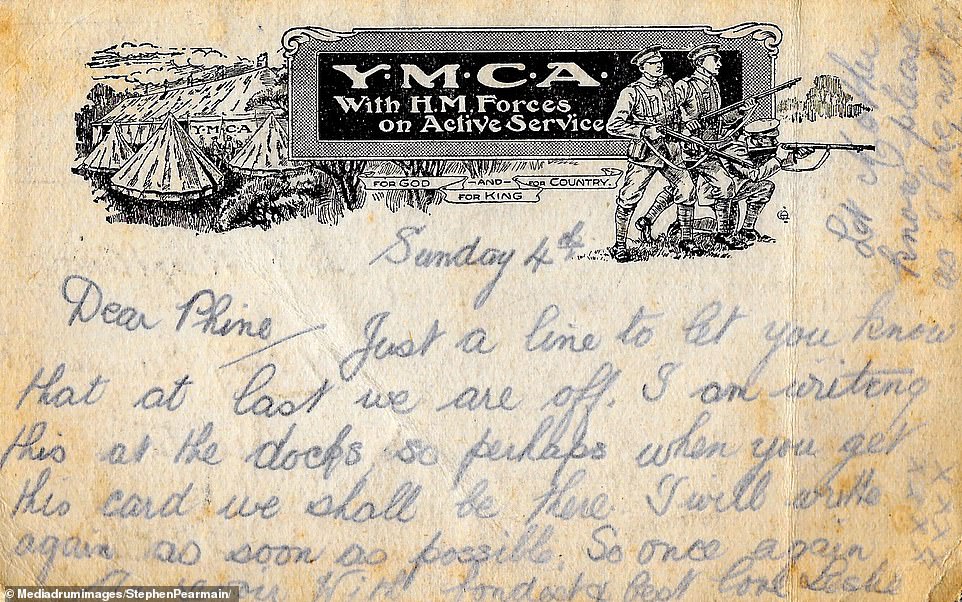 Y·M·C·A·
With H.M. Forces
on Active Service
YMCA
FOR GOD —AND— FOR COUNTRY.
FOR KING
Sunday 4th
Dear Phine
Just a line to let you know
that at last we are off. I am writing
this at the docks so perhaps when you get
this card we shall be there I will write
again as soon as possible So once again
With fondest & best love Leslie
Let Mother
know please
as
x x x x x x x
© Mediadrumimages/StephenPearmain/